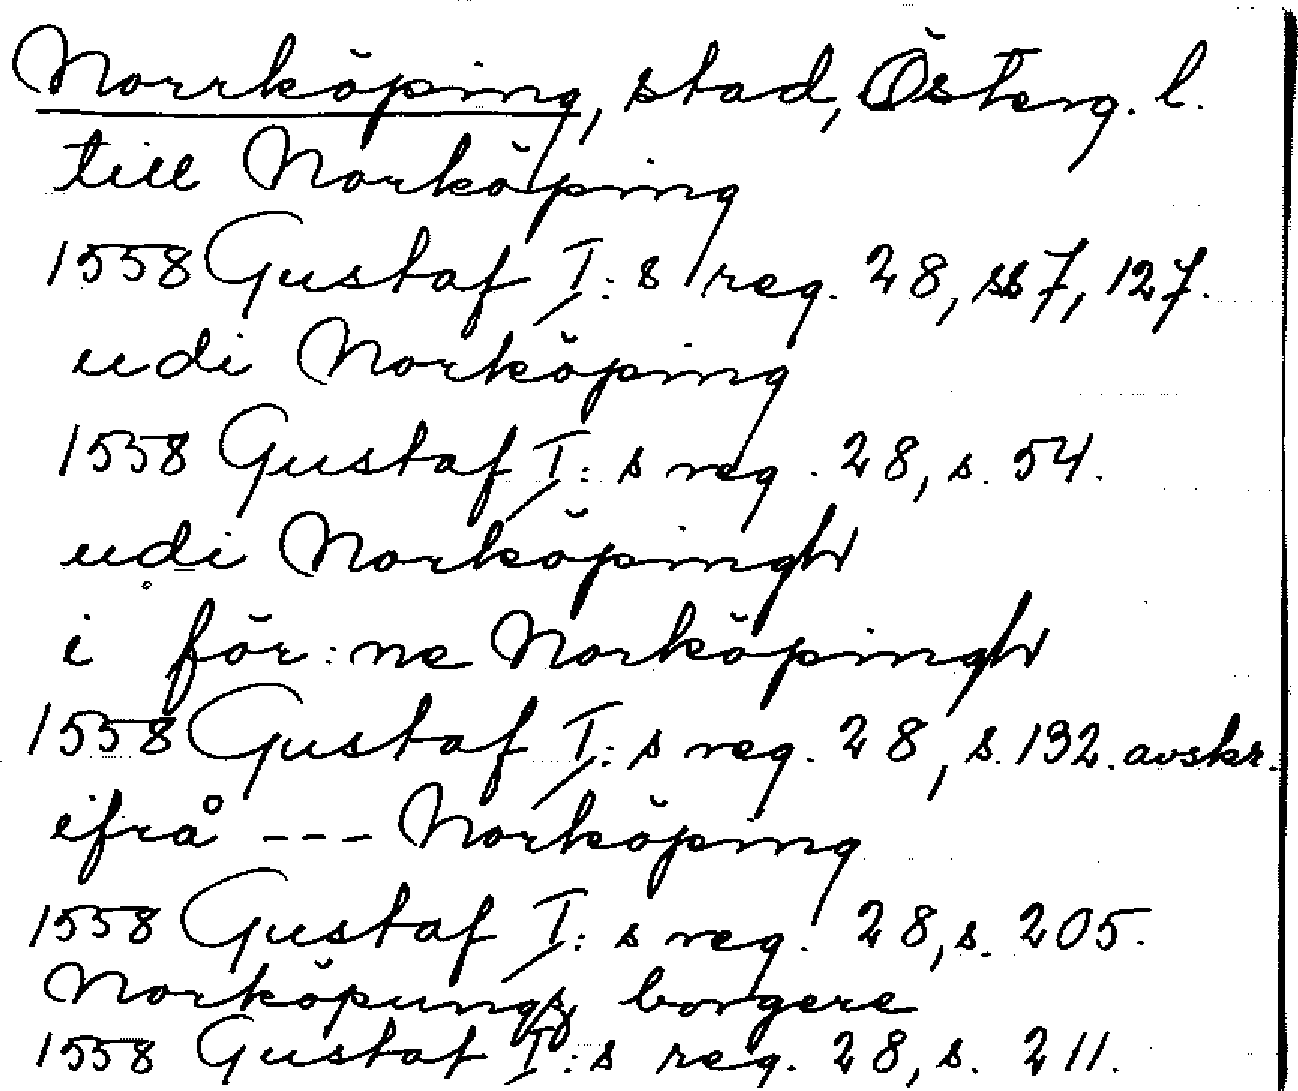 Norrköping, stad, Österg. l.
till Norköping
1558 Gustaf I:s reg. 28, ss 7, 127.
udi Norköping
1558 Gustaf I:s reg. 28, s. 54.
udi Norköpingh
i för:ne Norköpingh
1558 Gustaf I:s reg. 28, s. 132. avskr.
ifrå --- Norköping
1558 Gustaf I:s reg. 28, s. 205.
Norköpungs borgere
1558 Gustaf I:s reg. 28, s. 211.